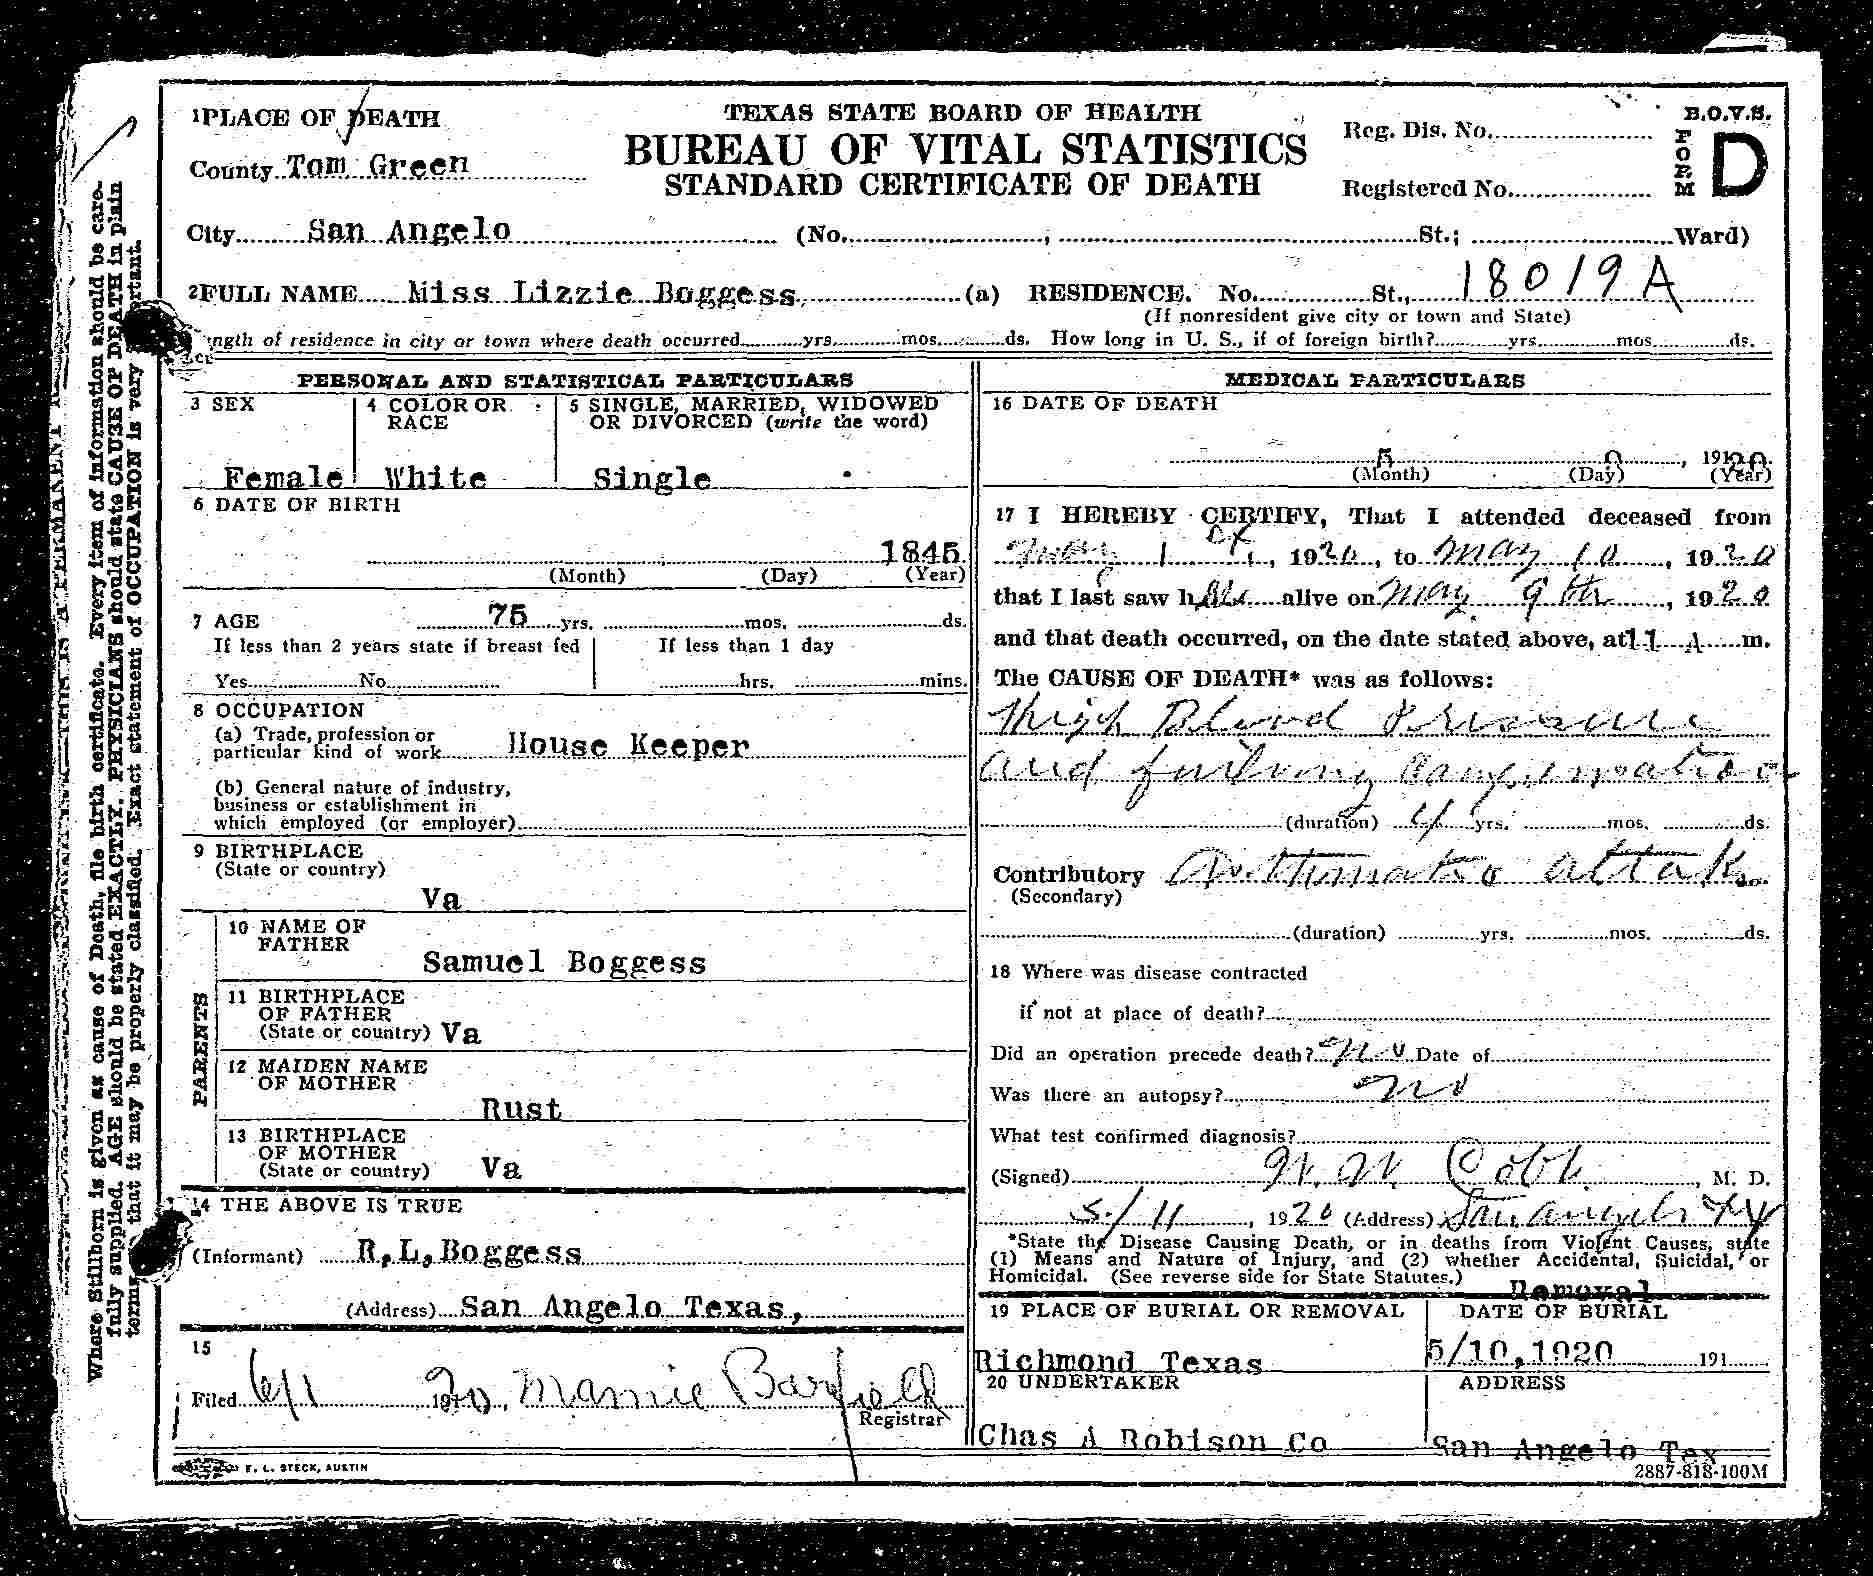 1 PLACE OF DEATH
TEXAS STATE BOARD OF HEALTH
BUREAU OF VITAL STATISTICS
STANDARD CERTIFICATE OF DEATH
Reg. Dis. No.
Registered No.
B.O.V.S.
FORM D
County Tom Green
City San Angelo (No. , St.; Ward)
2 FULL NAME Miss Lizzie Boggess (a) RESIDENCE. No. St., 18019A
(If nonresident give city or town and State)
ngth of residence in city or town where death occurred yrs. mos. ds. How long in U. S., if of foreign birth? yrs. mos. ds.
PERSONAL AND STATISTICAL PARTICULARS
3 SEX
4 COLOR OR RACE
5 SINGLE, MARRIED, WIDOWED
OR DIVORCED (write the word)
Female White Single
6 DATE OF BIRTH
1845
(Month) (Day) (Year)
7 AGE 75 yrs. mos. ds.
If less than 2 years state if breast fed If less than 1 day
Yes No hrs. mins.
8 OCCUPATION
(a) Trade, profession or
particular kind of work House Keeper
(b) General nature of industry,
business or establishment in
which employed (or employer)
9 BIRTHPLACE
(State or country)
Va
PARENTS
10 NAME OF
FATHER
Samuel Boggess
11 BIRTHPLACE
OF FATHER
(State or country) Va
12 MAIDEN NAME
OF MOTHER
Rust
13 BIRTHPLACE
OF MOTHER
(State or country) Va
14 THE ABOVE IS TRUE
(Informant) R.L.Boggess
(Address) San Angelo Texas,
15
Filed 6/1 1920, Mamie Barfield
Registrar
MEDICAL PARTICULARS
16 DATE OF DEATH
5 , 1920
(Month) (Day) (Year)
17 I HEREBY CERTIFY, That I attended deceased from
May 1st, 1920, to May 10, 1920
that I last saw her alive on May 9th, 1920
and that death occurred, on the date stated above, at 11 A m.
The CAUSE OF DEATH* was as follows:
High Blood Pressure
and
(duration) 4 yrs. mos. ds.
Contributory attak
(Secondary)
(duration) yrs. mos. ds.
18 Where was disease contracted
if not at place of death?
Did an operation precede death? No Date of
Was there an autopsy? No
What test confirmed diagnosis?
(Signed) Cobb, M. D.
5/11, 1920 (Address) San Angelo Tex
*State the Disease Causing Death, or in deaths from Violent Causes, state
(1) Means and Nature of Injury, and (2) whether Accidental, Suicidal, or
Homicidal. (See reverse side for State Statutes.)
Removal
19 PLACE OF BURIAL OR REMOVAL DATE OF BURIAL
Richmond Texas 5/10,1920 191
20 UNDERTAKER ADDRESS
Chas A Robison Co San Angelo Tex
E. L. STECK, AUSTIN
2887-818-100M
Where Stillborn is given as cause of Death, file birth certificate. Every item of information should be care-
fully supplied. AGE should be stated EXACTLY. PHYSICIANS should state CAUSE OF DEATH in plain
terms, that it may be properly classified. Exact statement of OCCUPATION is very important.